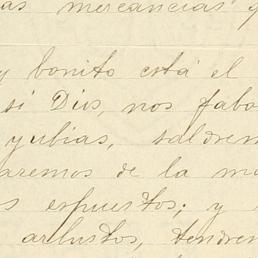 as mercancias q
y bonito está el
si Dios, nos fabo
yubias, saldrem
aremos de la ma
s espuestos; y
arbustos, tendrem